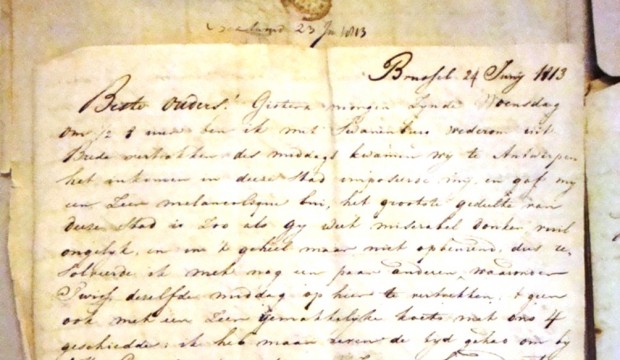 23 Ju 1813
Brussel 24 Juny 1813
Beste Ouders! Gisteren morgen Zynde Woensdag
om ½ 8 uur ben ik met Swanenburg wederom uit
Breda vertrokken des middags kwamen wy te Antwerpen
het inkomen in deeze stad imposeerde my, en gaf my
een Zeer melancolique bui, het grootste gedeelte van
deeze Stad is Zoo als gy weet miserabel donker vuil
ongelyk, en in 't geheel maar niet opbeurend, dus re-
solveerde ik met nog een paar anderen, waaronder
deselfde middag op hier te vertrekken, 't geen
ook met een Zeer gemakkelyke koets met ons 4
geschiedde; ik heb maar even de tyd gehad om by